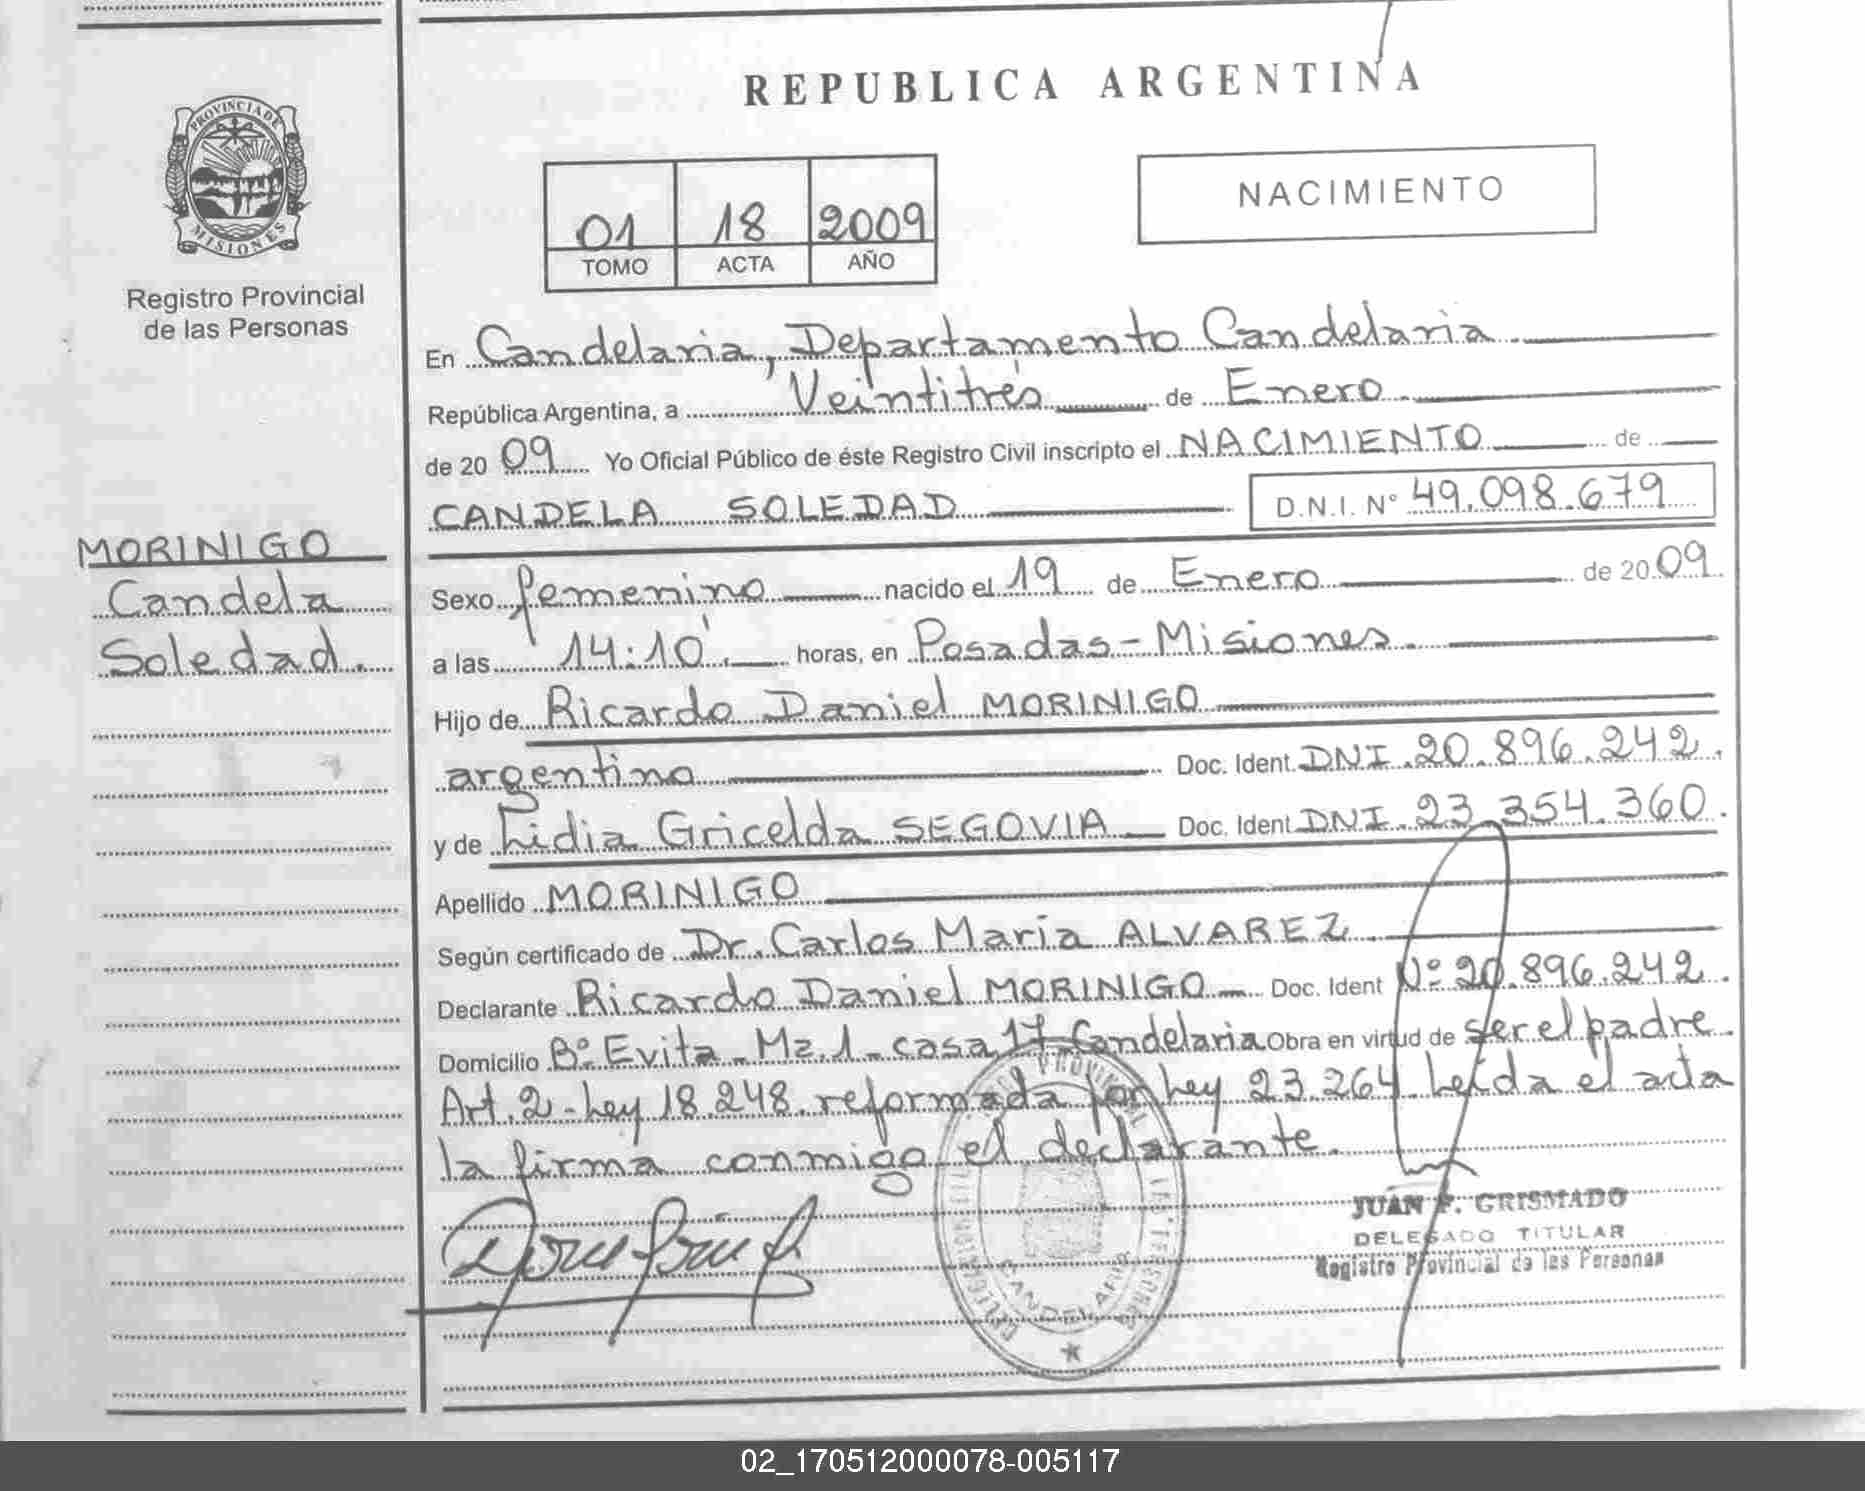 REPUBLICA ARGENTINA
PROVINCIA DE
MISIONES
Registro Provincial
de las Personas
01 18 2009
TOMO ACTA AÑO
NACIMIENTO
MORINIGO
Candela
Soledad.
En Candelaria, Departamento Candelaria
República Argentina, a Veintitrés de Enero
de 20 09 Yo Oficial Público de éste Registro Civil inscripto el NACIMIENTO de
CANDELA SOLEDAD D.N.I. N° 49.098.679
Sexo femenino nacido el 19 de Enero de 20 09
a las 14:10' horas, en Posadas - Misiones.
Hijo de Ricardo Daniel MORINIGO
argentino Doc. Ident. DNI. 20.896.242.
y de Lidia Gricelda SEGOVIA Doc. Ident DNI. 23.354.360.
Apellido MORINIGO
Según certificado de Dr. Carlos Maria ALVAREZ.
Declarante Ricardo Daniel MORINIGO Doc. Ident Nº 20.896.242.
Domicilio Bº Evita - Mz. 1 - casa 17 Candelaria Obra en virtud de ser el padre.
Art. 2 - Ley 18.248 reformada por Ley 23.264. Leída el acta
la firma conmigo el declarante.
CANDELARIA
JUAN F. GRISMADO
DELEGADO TITULAR
Registro Provincial de las Personas
02_170512000078-005117